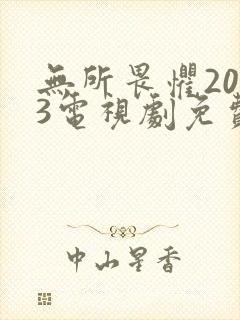 無所畏懼20
3電視劇免費
中山星香